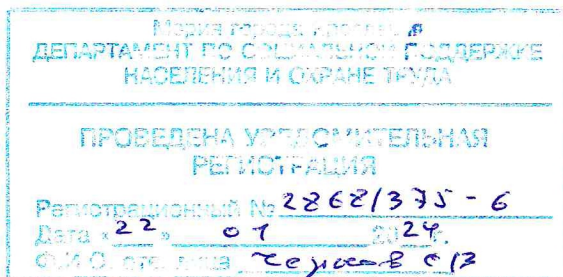 Мэрия города
ДЕПАРТАМЕНТ ПО СОЦИАЛЬНОЙ ПОДДЕРЖКЕ
НАСЕЛЕНИЯ И ОХРАНЕ ТРУДА
ПРОВЕДЕНА УВЕДОМИТЕЛЬНАЯ
РЕГИСТРАЦИЯ
Регистрационный № 2868/375-6
Дата «22» 01 2024г.
Ф.И.О. отв. лица